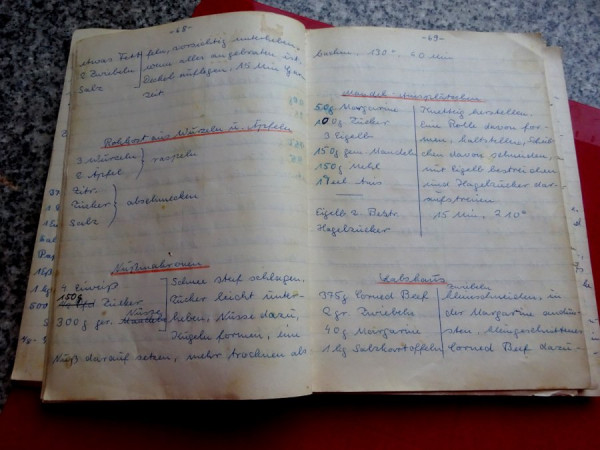 -68-
etwas Fett
2 Zwiebeln
Salz
feln, vorsichtig unterheben,
wenn alles angebraten ist.
Deckel auflegen, 15 Min Gar-
zeit
Rohkost aus Wurzeln u. Äpfeln
3 Wurzeln
2 Äpfel
raspeln
Zitr.
Zucker
Salz
abschmecken
Nußmakronen
4 Eiweiß
150g Zucker
300 g ger. Nüsse
Schnee steif schlagen,
Zucker leicht unter-
heben, Nüsse dazu,
Kugeln formen, eine
Nuß darauf setzen, mehr trocknen als
-69-
backen, 130°, 40 Min
Mandel-
50g Margarine
100g Zucker
3 Eigelb
150g gem. Mandeln
150g Mehl
1 Teel Anis
Eigelb z. Bestr.
Hagelzucker
Knetteig herstellen.
Eine Rolle davon for-
men, kaltstellen, Scheib-
chen davon schneiden,
mit Eigelb bestreichen
und Hagelzucker dar-
aufstreuen
15 Min, 210°
Labskaus
375g Corned Beef
2 gr. Zwiebeln
40g Margarine
1 kg Salzkartoffeln
Zwiebeln
kleinschneiden, in
der Margarine andün-
sten, kleingeschnittenes
Corned Beef dazu-